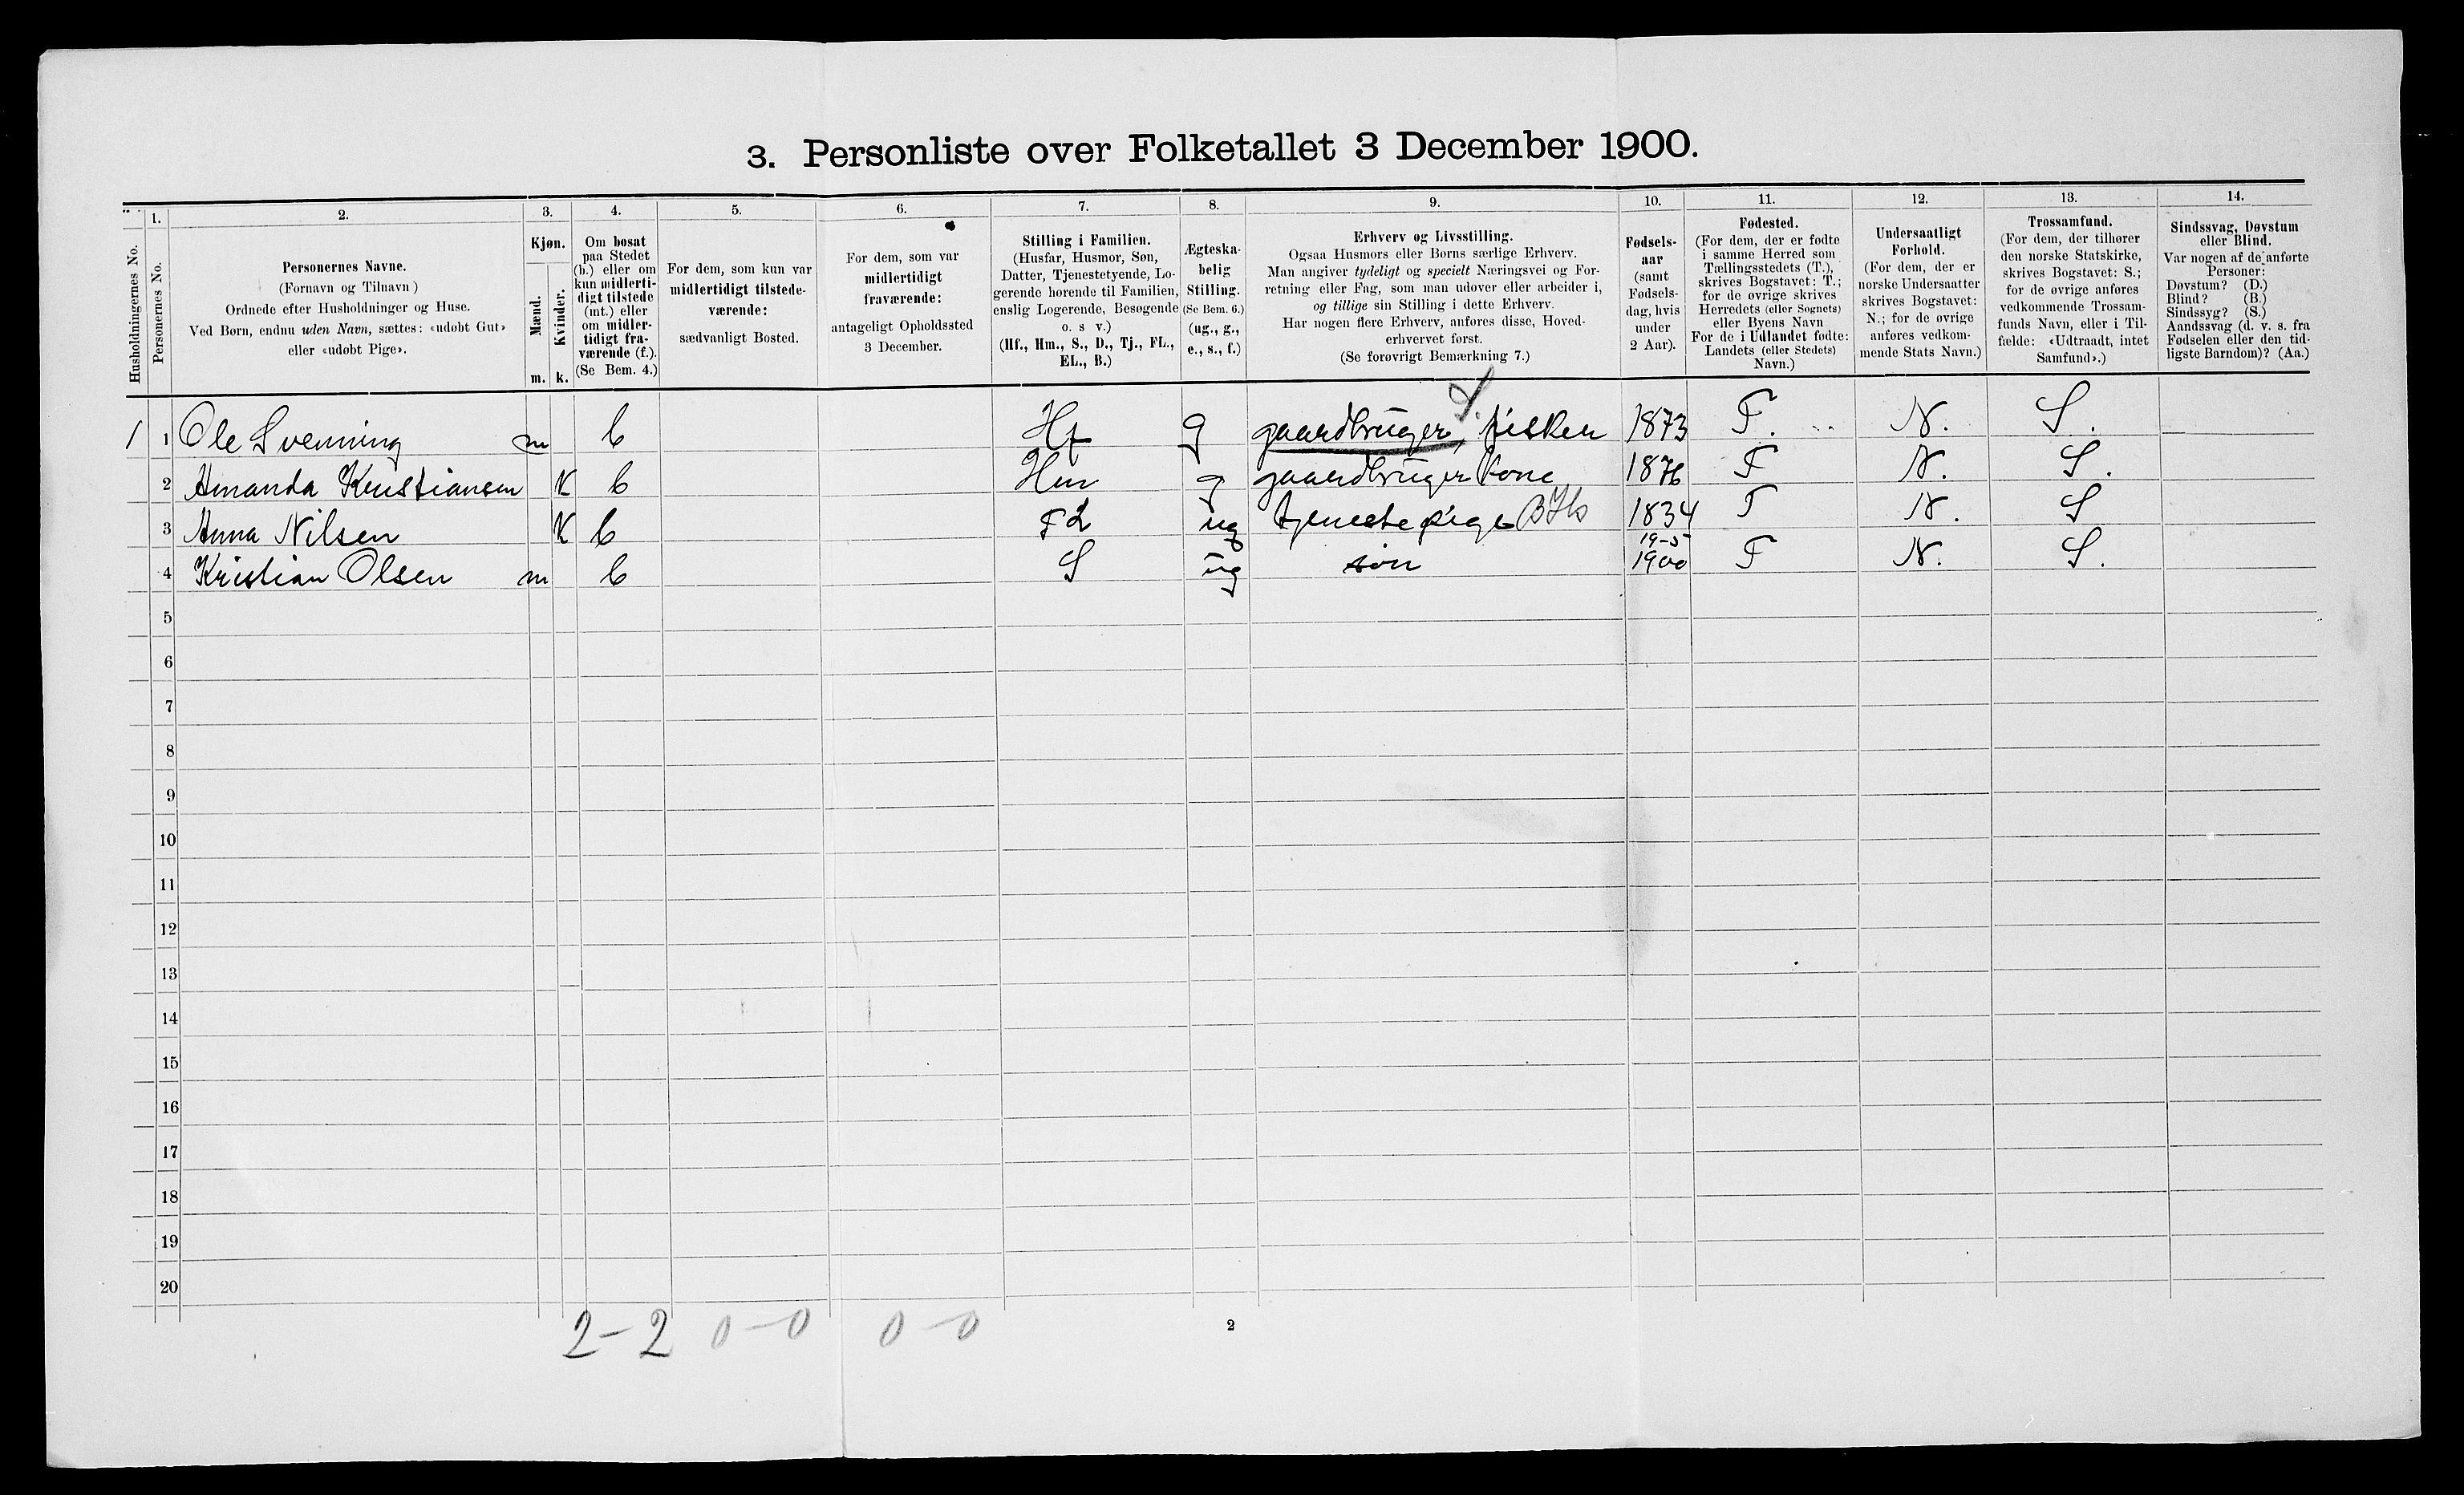 3. Personliste over Folketallet 3 December 1900.
1. 2. 3. 4. 5. 6. 7. 8. 9. 10. 11. 12. 13. 14.
Husholdningernes No.
Personernes No.
Personernes Navne.
(Fornavn og Tilnavn )
Ordnede efter Husholdninger og Huse.
Ved Børn, endnu uden Navn, sættes: «udøbt Gut»
eller «udøbt Pige».
Kjøn.
Mænd.
Kvinder.
m. k.
Om bosat
paa Stedet
(b.) eller om
kun midlerti-
digt tilstede
(mt.) eller
om midler-
tidigt fra-
værende (f.).
(Se Bem. 4.)
For dem, som kun var
midlertidigt tilstede-
værende:
sædvanligt Bosted.
For dem, som var
midlertidigt
fraværende:
antageligt Opholdssted
3 December.
Stilling i Familien.
(Husfar, Husmor, Søn,
Datter, Tjenestetyende, Lo-
gerende hørende til Familien,
enslig Logerende, Besøgende
o. s v.)
(Hf., Hm., S., D., Tj., FL.,
EL., B.)
Ægteska-
belig
Stilling.
(Se Bem. 6.)
(ug., g.,
e., s., f.)
Erhverv og Livsstilling.
Ogsaa Husmors eller Børns særlige Erhverv.
Man angiver tydeligt og specielt Næringsvei og For-
retning eller Fag, som man udøver eller arbeider i,
og tillige sin Stilling i dette Erhverv.
Har nogen flere Erhverv, anføres disse, Hoved-
erhvervet først.
(Se forøvrigt Bemærkning 7.)
Fødsels-
aar
(samt
Fødsels-
dag, hvis
under
2 Aar).
Fødested.
(For dem, der er fødte
i samme Herred som
Tællingsstedets (T.),
skrives Bogstavet: T.;
for de øvrige skrives
Herredets (eller Sognets)
eller Byens Navn
For de i Udlandet fødte:
Landets (eller Stedets)
Navn.)
Undersaatligt
Forhold.
(For dem, der er
norske Undersaatter
skrives Bogstavet:
N.; for de øvrige
anføres vedkom-
mende Stats Navn.)
Trossamfund.
(For dem, der tilhører
den norske Statskirke,
skrives Bogstavet: S.;
for de øvrige anføres
vedkommende Trossam-
funds Navn, eller i Til-
fælde: «Udtraadt, intet
Samfund».)
Sindssvag, Døvstum
eller Blind.
Var nogen af de anførte
Personer:
Døvstum? (D.)
Blind? (B.)
Sindssyg? (S.)
Aandssvag (d. v. s. fra
Fødselen eller den tid-
ligste Barndom)? (Aa.)
1 1 Ole Svenning m b Hf g gaardbruger, fisker 1873 T. N. S.
2 Amanda Kristiansen K b Hm g gaardbruger kone 1876 T N. S.
3 Anna Nilsen K b FL ug tjenestepige 1834 T N. S
19-5
4 Kristian Olsen m b S ug søn 1900 T N. S.
5
6
7
8
9
10
11
12
13
14
15
16
17
18
19
20
2-2 0-0 0-0
2